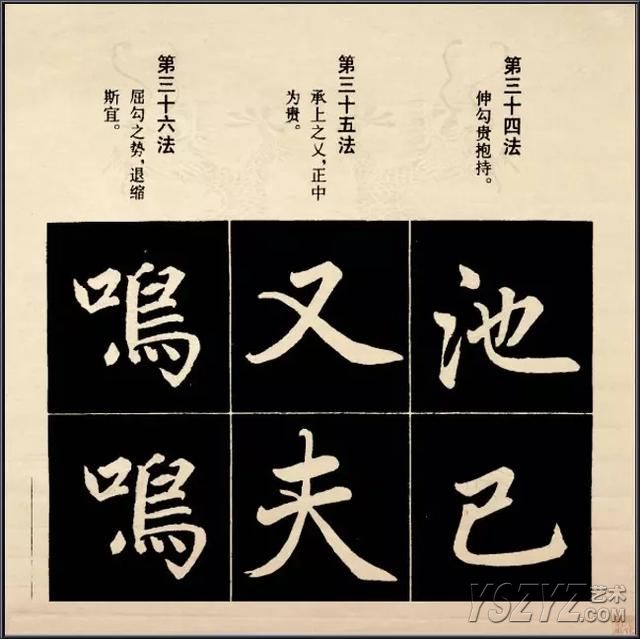 第三十四法
伸勾贵抱持。
池
已
第三十五法
承上之乂，正中
为贵。
又
夫
第三十六法
屈勾之势，退缩
斯宜。
鳴
鳴
YSZYZ艺术.COM